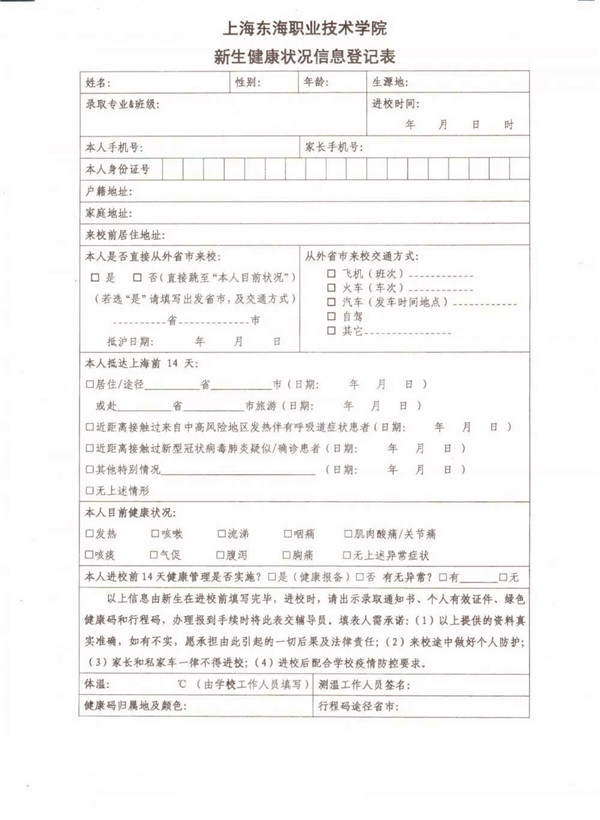 上海东海职业技术学院
新生健康状况信息登记表
姓名: 性别: 年龄: 生源地:
录取专业&班级: 进校时间:
年 月 日 时
本人手机号: 家长手机号:
本人身份证号
户籍地址:
家庭地址:
来校前居住地址:
本人是否直接从外省市来校:
□ 是 □ 否(直接跳至“本人目前状况”)
(若选“是”请填写出发省市,及交通方式)
---------省-----------市
抵沪日期: 年 月 日
从外省市来校交通方式:
□ 飞机(班次)------------
□ 火车(车次)------------
□ 汽车(发车时间地点)------------
□ 自驾
□ 其它----------------
本人抵达上海前 14 天:
□居住/途径________省________市(日期: 年 月 日 )
或赴________省________市旅游(日期: 年 月 日 )
□近距离接触过来自中高风险地区发热伴有呼吸道症状患者(日期: 年 月 日)
□近距离接触过新型冠状病毒肺炎疑似/确诊患者(日期: 年 月 日)
□其他特别情况______________________(日期: 年 月 日)
□无上述情形
本人目前健康状况:
□发热 □咳嗽 □流涕 □咽痛 □肌肉酸痛/关节痛
□咳痰 □气促 □腹泻 □胸痛 □无上述异常症状
本人进校前14天健康管理是否实施?□是(健康报备)□否 有无异常?□有______□无
以上信息由新生在进校前填写完毕,进校时,请出示录取通知书、个人有效证件、绿色
健康码和行程码,办理报到手续时将此表交辅导员。填表人需承诺:(1)以上提供的资料真
实准确,如有不实,愿承担由此引起的一切后果及法律责任;(2)来校途中做好个人防护;
(3)家长和私家车一律不得进校;(4)进校后配合学校疫情防控要求。
体温: ℃ (由学校工作人员填写) 测温工作人员签名:
健康码归属地及颜色: 行程码途径省市: